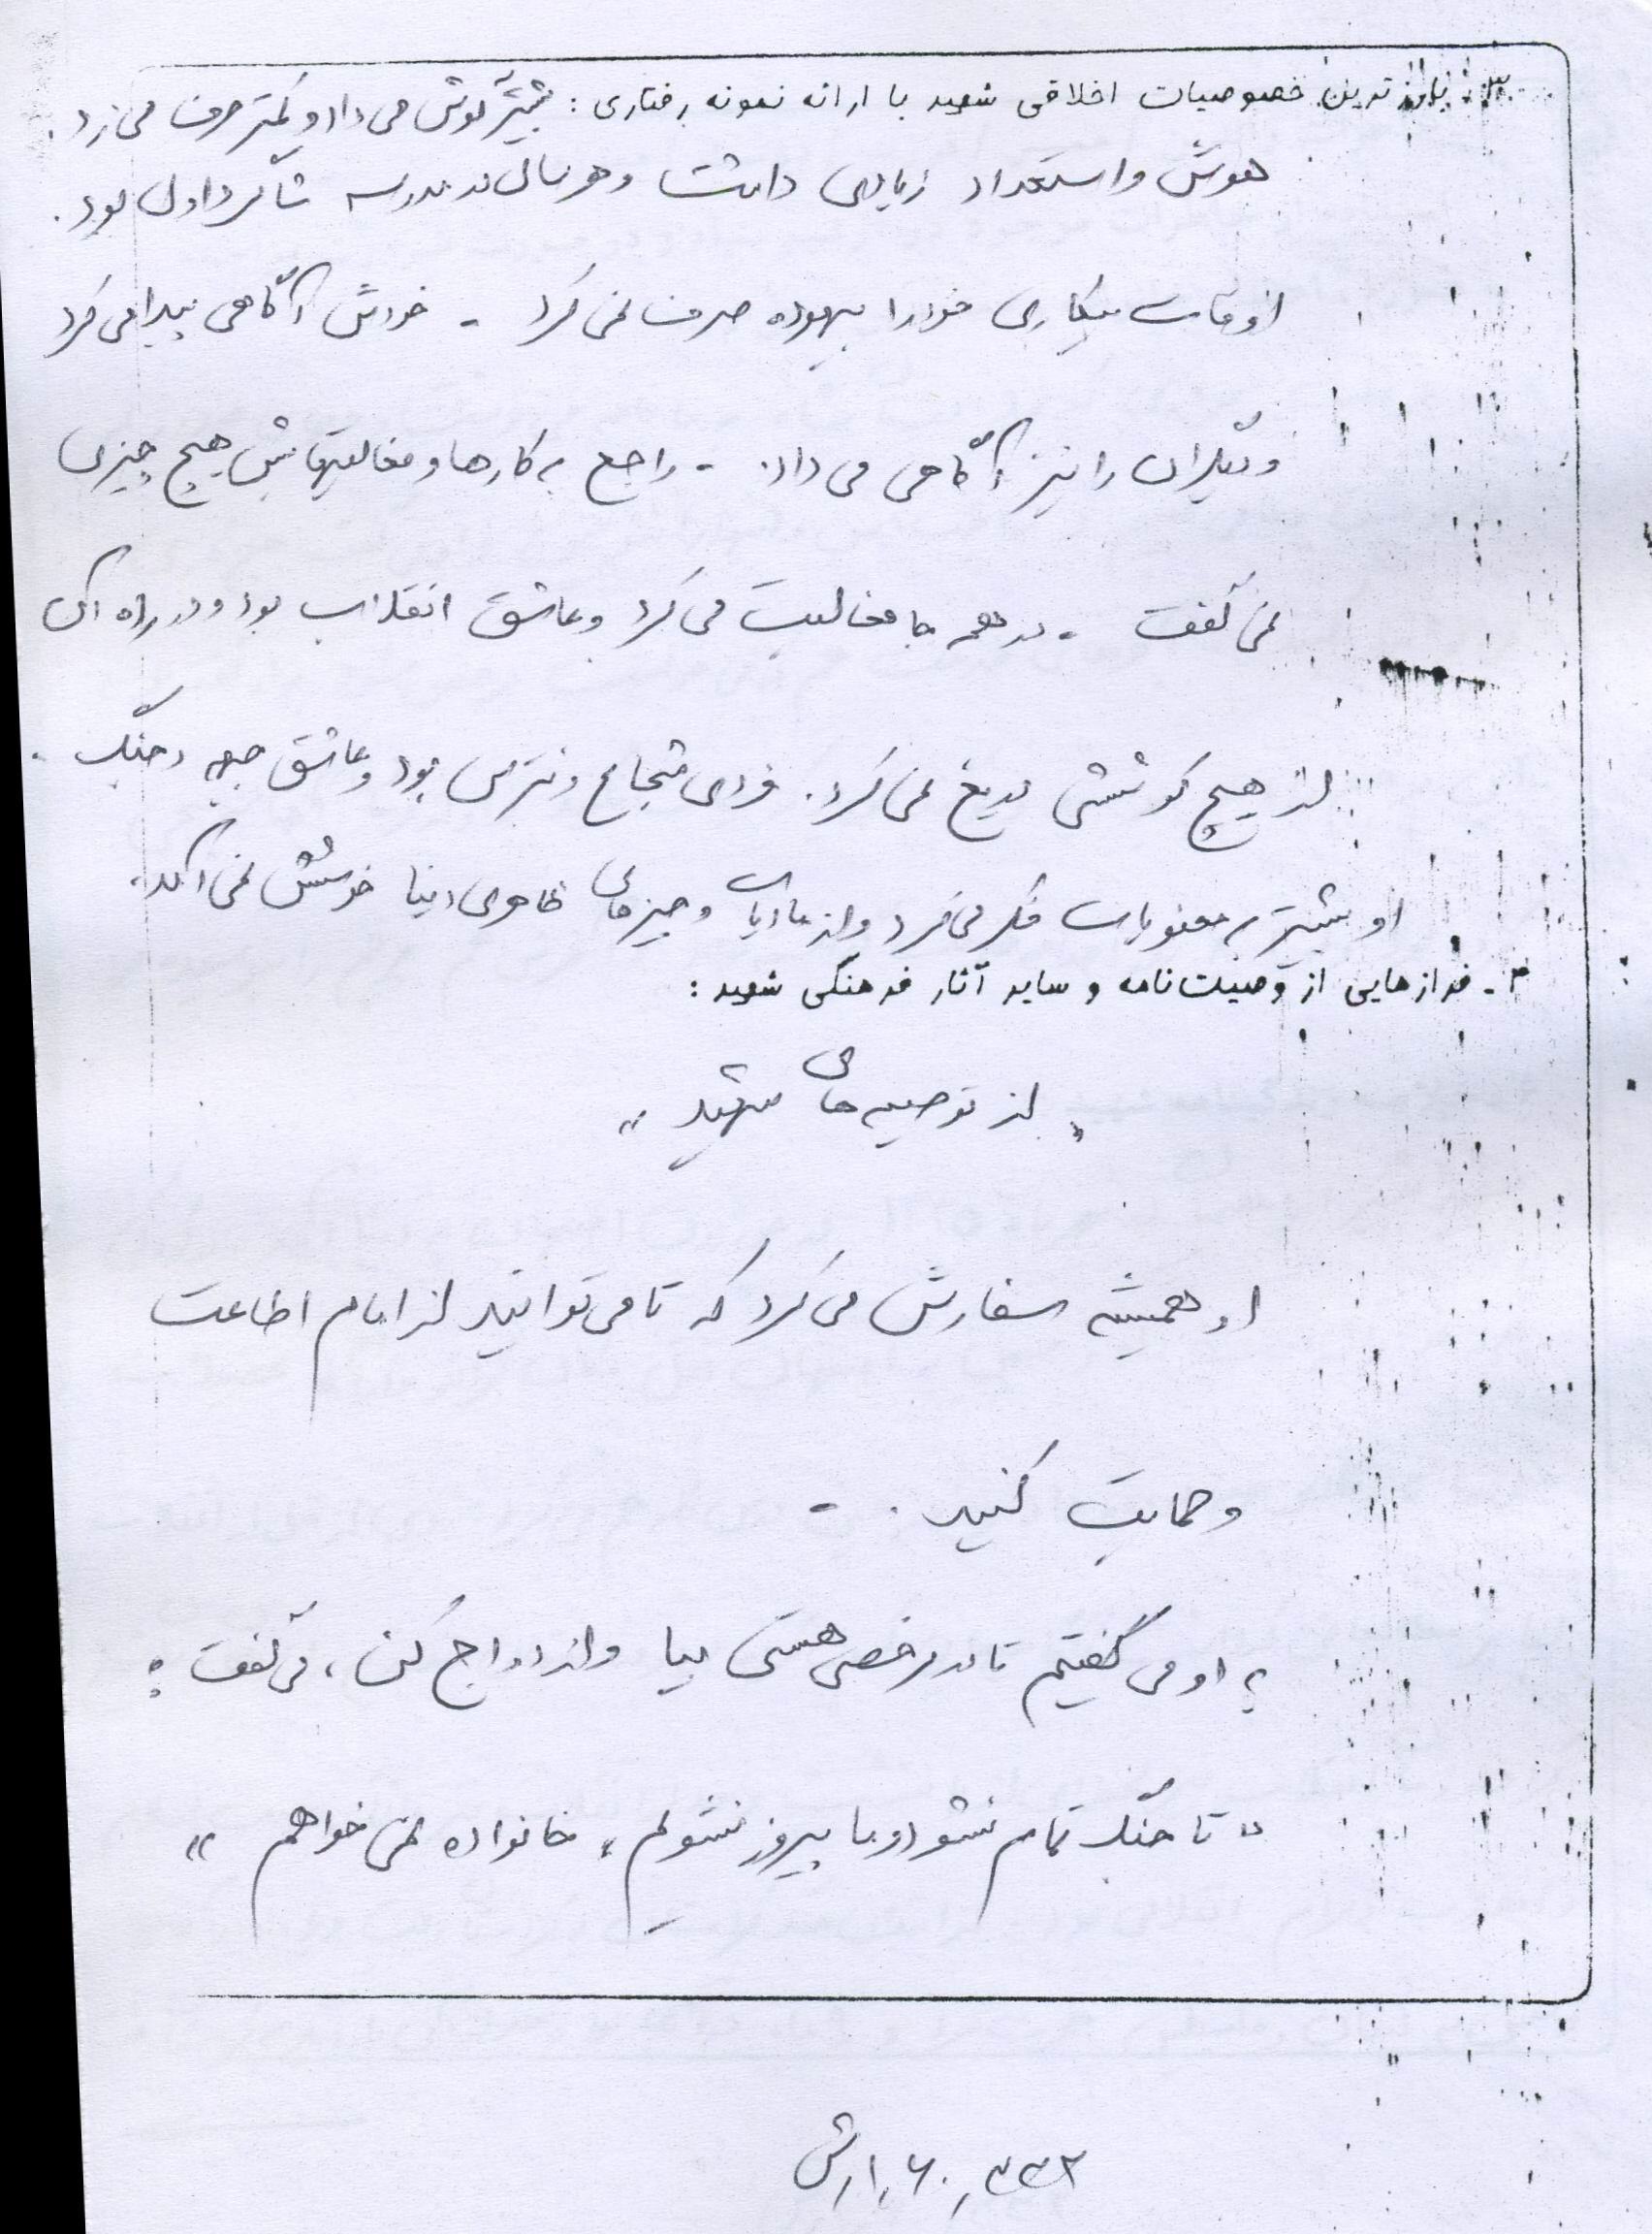 ۳ـ بارزترین خصوصیات اخلاقی شهید با ارائه نمونه رفتاری : بیشتر گوش می داد و کمتر حرف می زد .
هوش و استعداد زیادی داشت و هر سال در مدرسه شاگرد اول بود .
اوقات بیکاری خود را بیهوده صرف نمی کرد - خودش آگاهی پیدا می کرد
و دیگران را نیز آگاهی می داد . - راجع به کارها و فعالیتهایش هیچ چیزی
نمی گفت - در همه جا فعالیت می کرد و عاشق انقلاب بود و در راه آن
از هیچ کوششی دریغ نمی کرد . فردی شجاع و نترس بود و عاشق جبهه و جنگ .
او بیشتر به معنویات فکر می کرد و از مادیات و چیزهای ظاهری دنیا خوشش نمی آمد .
۴ـ فرازهایی از وصیت‌نامه و سایر آثار فرهنگی شهید :
" از توصیه های شهید "
او همیشه سفارش می کرد که تا می توانید از امام اطاعت
و حمایت کنید . -
به او می گفتیم تا در مرخصی هستی بیا و ازدواج کن ، می گفت :
" تا جنگ تمام نشود و ما پیروز نشویم ، خانواده نمی خواهم "
ارش